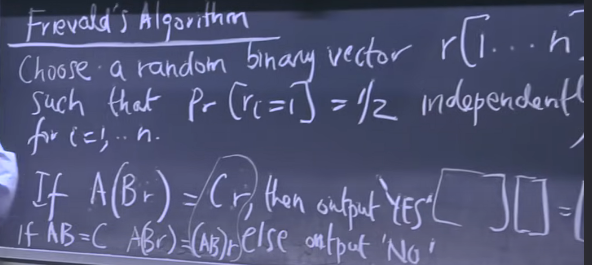 Frievald's Algorithm
Choose a random binary vector r[1...n]
such that Pr[ri=1] = 1/2 independentl
for i=1,..n.
If A(Br) = Cr, then output 'YES'
If AB=C A(Br)=(AB)r else output 'No'